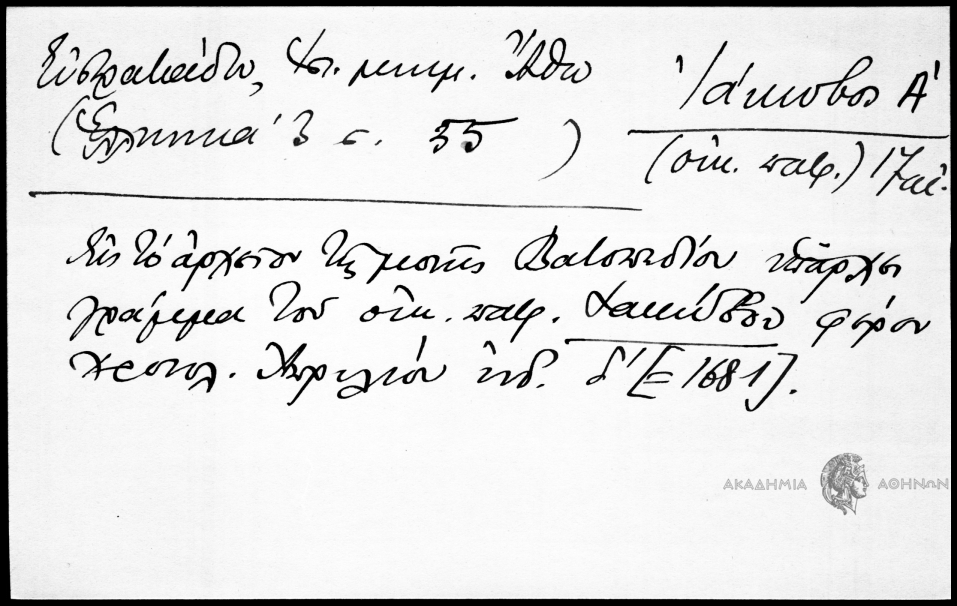 Εὐστρατιάδου, Ἱστ. μνημ. Ἄθω
(Ἑλληνικά 3 σ. 55)
Ἰάκωβος Α΄
(οἰκ. πατρ.) 17 αἰ.
Εἰς τὸ ἀρχεῖον τῆς μονῆς Βατοπεδίου ὑπάρχει
γράμμα τοῦ οἰκ. πατρ. Ἰακώβου φέρον
χρονολ. Ἀπριλίου ἰνδ. δ΄ [= 1681].
ΑΚΑΔΗΜΙΑ ΑΘΗΝΩΝ